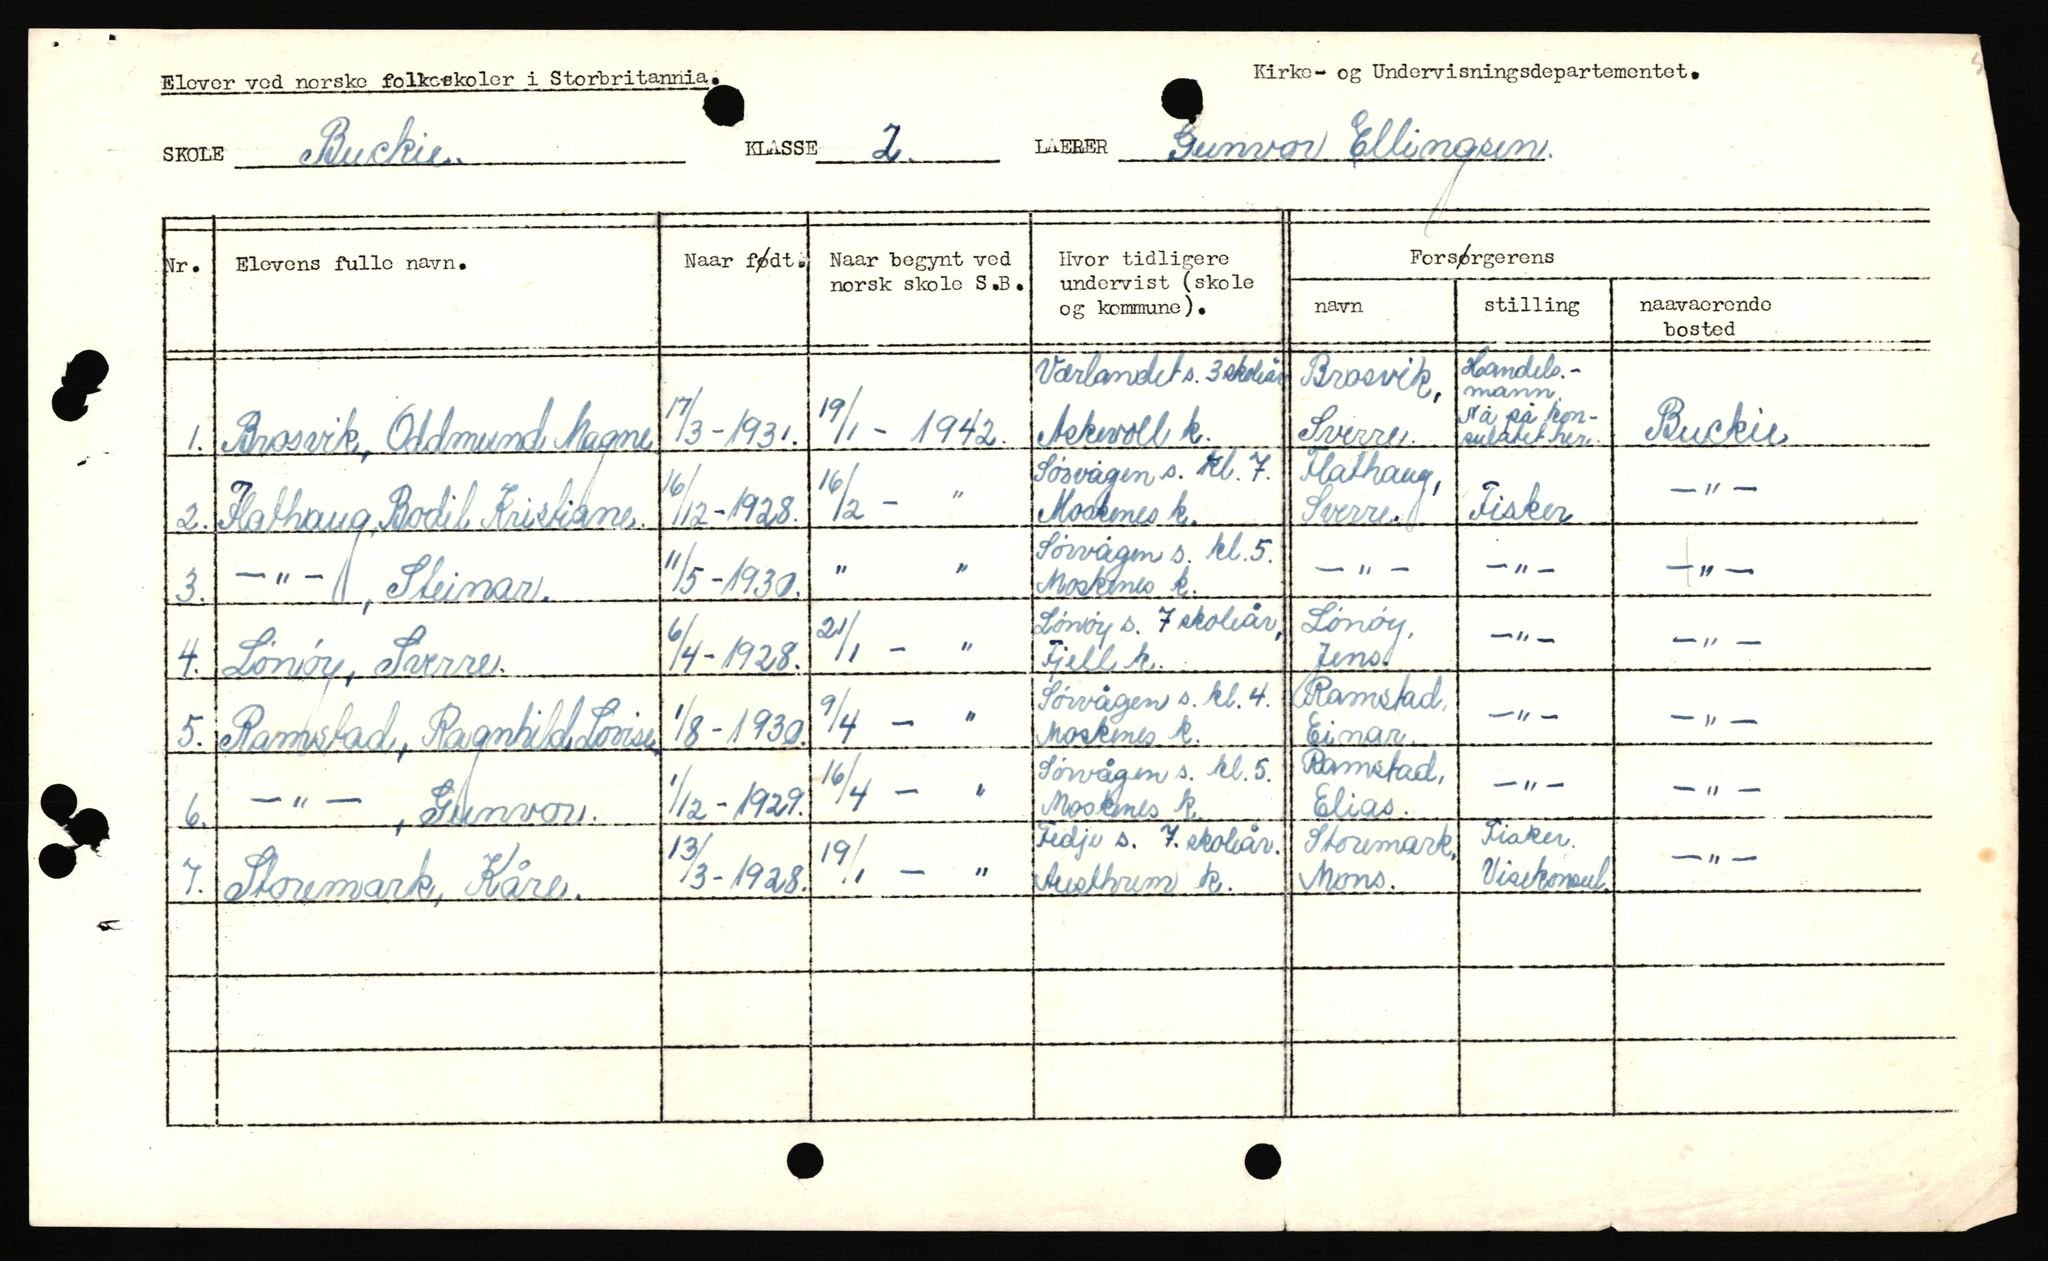 Elever ved norske folkeskoler i Storbritannia.
Kirke- og Undervisningsdepartementet.
SKOLE Buckie. KLASSE 2. LAERER Gunvor Ellingsen.
Nr. Elevens fulle navn. Naar født. Naar begynt ved norsk skole S.B. Hvor tidligere undervist (skole og kommune). Forsørgerens
navn stilling naavaerende bosted
1. Brosvik, Oddmund Magne 17/3-1931. 19/1 - 1942. Værlandet s. 3 skoleår Askevoll k. Brosvik, Sverre. Handels.-mann. Nå på kon-sulatet her. Buckie
2. Flathaug, Bodil Kristiane. 16/12-1928. 16/2 - " Sørvågen s. kl. 7. Moskenes k. Flathaug, Sverre. Fisker -"-
3. -"-, Steinar. 11/5-1930. " " Sørvågen s. kl. 5. Moskenes k. -"- -"- -"-
4. Lönöy, Sverre. 6/4-1928. 21/1 - " Lönöy s. 7 skoleår, Fjell k. Lönöy, Jens. -"- -"-
5. Ramstad, Ragnhild Lovise. 1/8-1930. 9/4 - " Sørvågen s. kl. 4. Moskenes k. Ramstad, Einar. -"- -"-
6. -"-, Gunvor. 1/12-1929. 16/4 - " Sørvågen s. kl. 5. Moskenes k. Ramstad, Elias. -"- -"-
7. Storemark, Kåre. 13/3-1928. 19/1 - " Fedje s. 7. skoleår. Austhrem k. Storemark, Mons. Fisker. Visekonsul. -"-